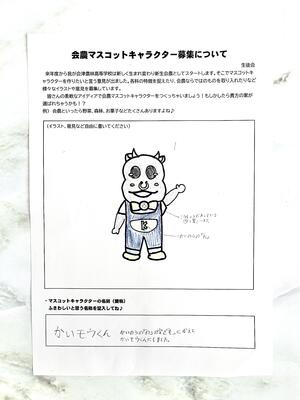 会農マスコットキャラクター募集について
生徒会
来年度から我が会津農林高等学校は新しく生まれ変わり新生会農としてスタートします。そこでマスコットキ
ャラクターを作りたいと言う意見が出ました。各科の特徴を捉えたり、会農ならではのものを取り入れたりなど
様々なイラストや意見を募集しています。
皆さんの素敵なアイディアで会農マスコットキャラクターをつくっちゃいましょう！もしかしたら貴方の案が
選ばれちゃうかも！？
例）会農といったら野菜、森林、お菓子などたくさんありますよね♪
（イラスト、意見など自由に書いてください）
・マスコットキャラクターの名前（愛称）
ふさわしいと思う名称を記入してね♪
かいモウくん
かいモウくんにしました。